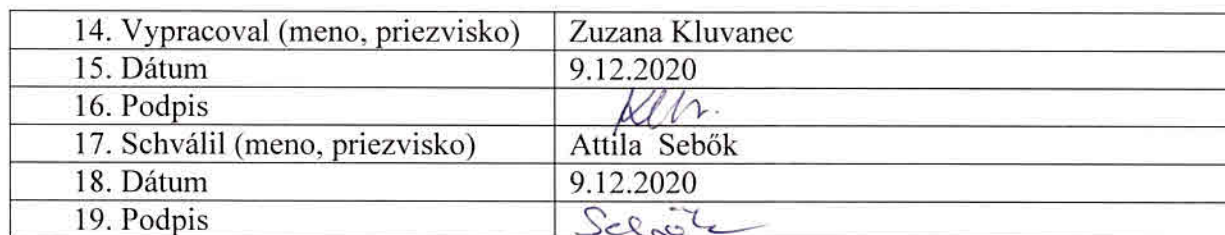 14. Vypracoval (meno, priezvisko) Zuzana Kluvanec
15. Dátum 9.12.2020
16. Podpis
17. Schválil (meno, priezvisko) Attila Sebők
18. Dátum 9.12.2020
19. Podpis